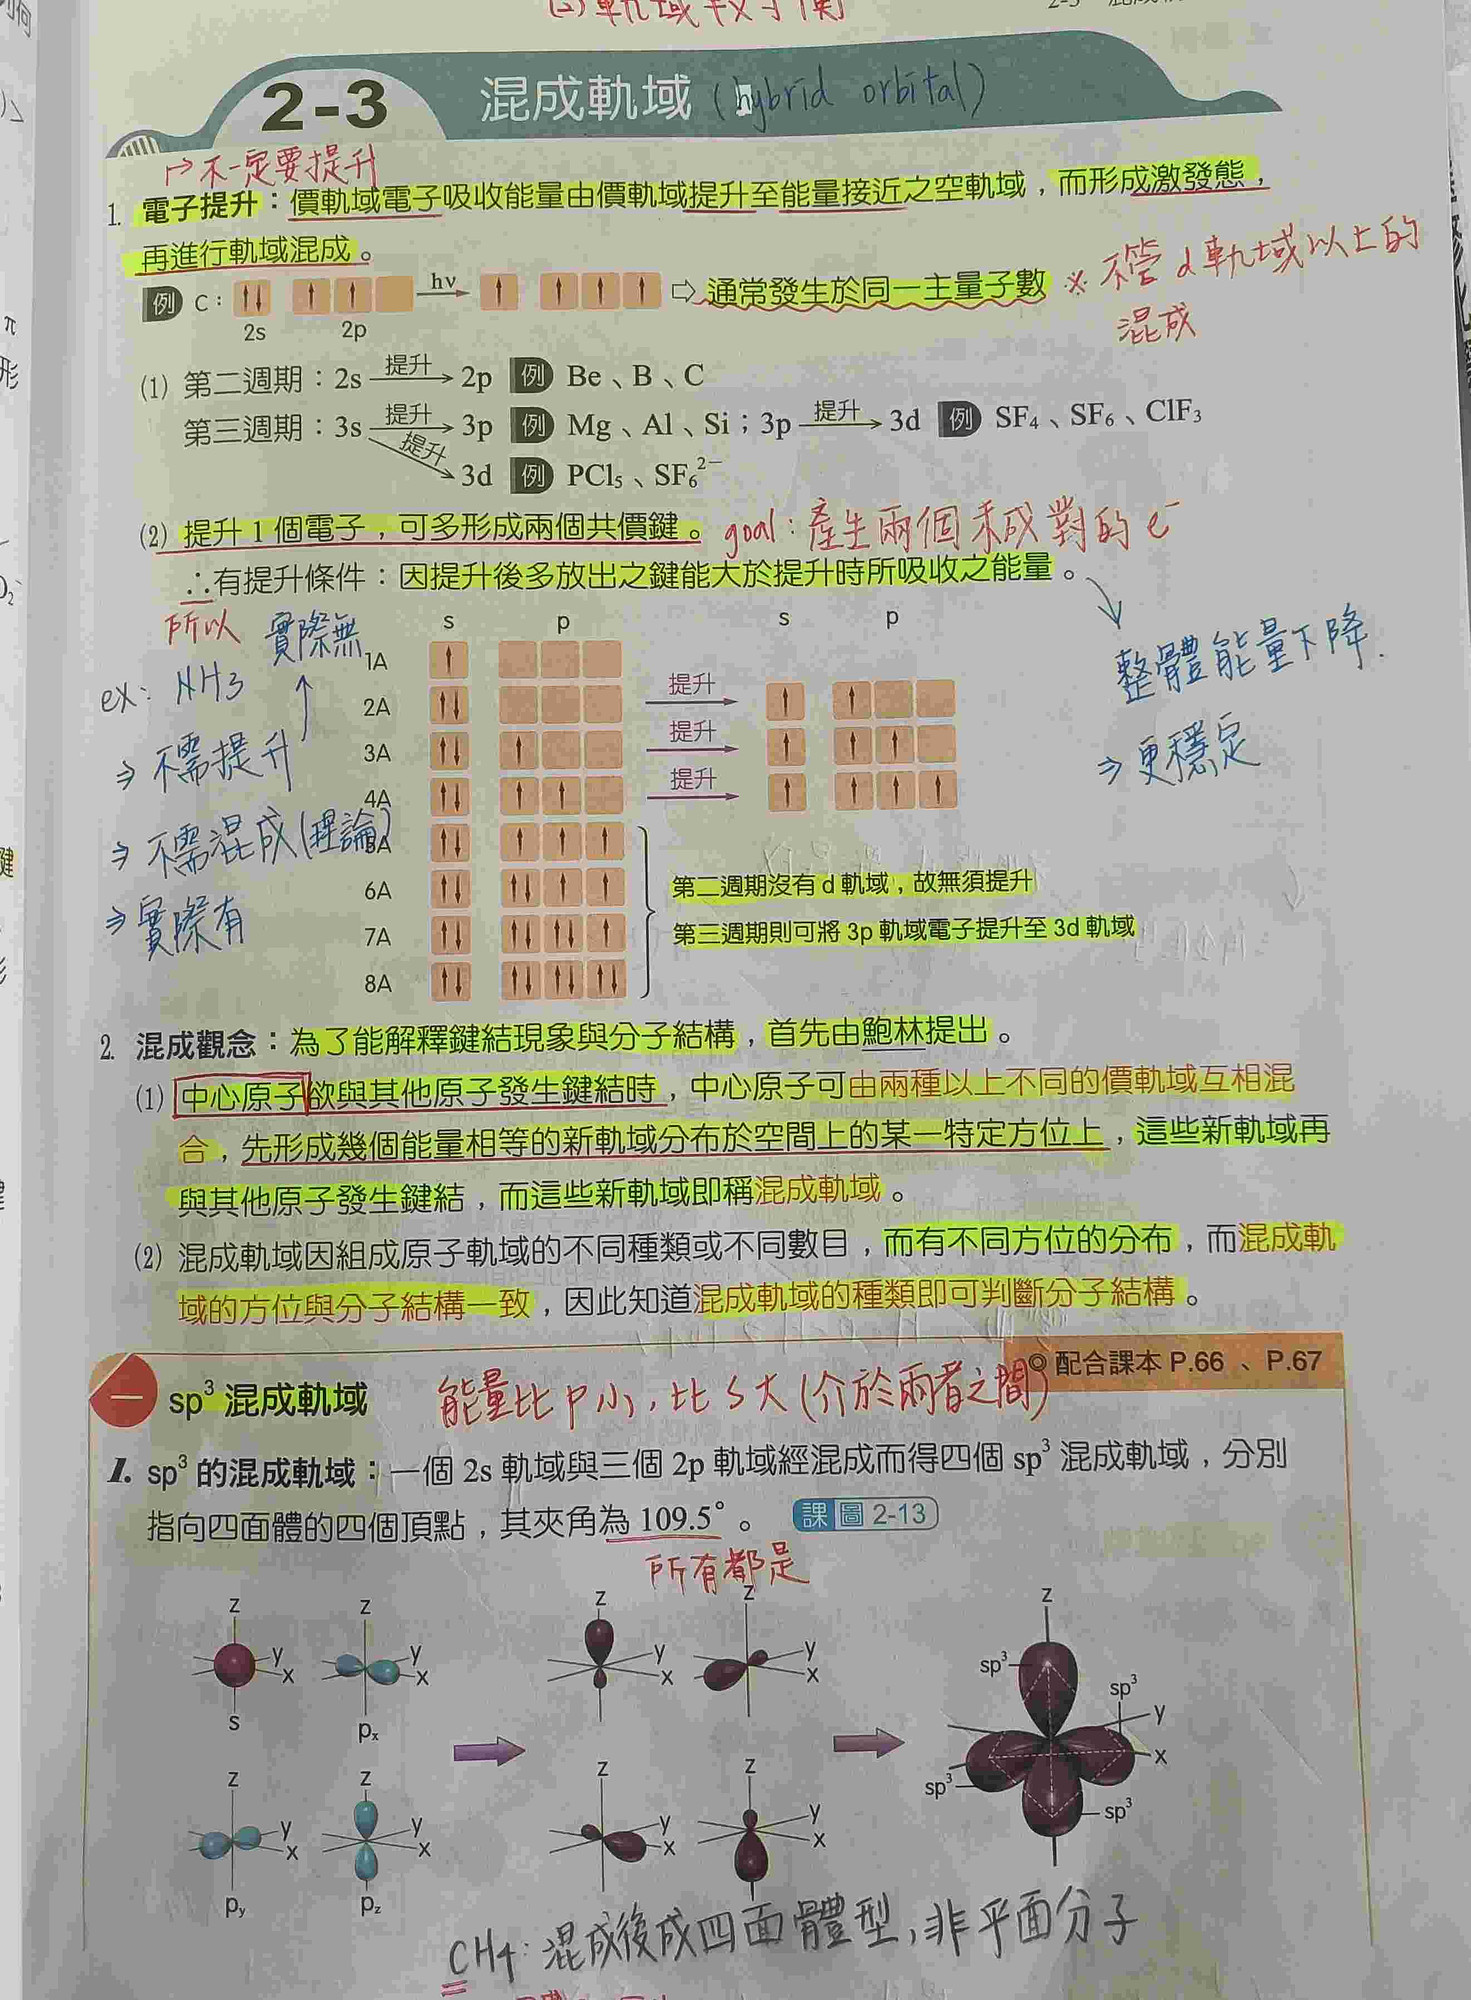 (2) 軌域
2-3 混成軌域 (hybrid orbital)
↱不一定要提升
1. 電子提升：價軌域電子吸收能量由價軌域提升至能量接近之空軌域，而形成激發態，
再進行軌域混成。
例 C： hν ⇨ 通常發生於同一主量子數 ※ 不管 d 軌域以上的
混成
2s 2p
(1) 第二週期：2s 提升→ 2p 例 Be、B、C
第三週期：3s 提升→ 3p 例 Mg、Al、Si；3p 提升→ 3d 例 SF₄、SF₆、ClF₃
提升→ 3d 例 PCl₅、SF₆²⁻
(2) 提升 1 個電子，可多形成兩個共價鍵。 goal：產生兩個未成對的 e⁻
∴有提升條件：因提升後多放出之鍵能大於提升時所吸收之能量。
所以 實際無
整體能量下降.
⇒更穩定
ex: NH3
⇒ 不需提升
⇒ 不需混成(理論)
⇒ 實際有
s p s p
1A
2A 提升
3A 提升
4A 提升
5A
6A 第二週期沒有 d 軌域，故無須提升
7A 第三週期則可將 3p 軌域電子提升至 3d 軌域
8A
2. 混成觀念：為了能解釋鍵結現象與分子結構，首先由鮑林提出。
(1) 中心原子欲與其他原子發生鍵結時，中心原子可由兩種以上不同的價軌域互相混
合，先形成幾個能量相等的新軌域分布於空間上的某一特定方位上，這些新軌域再
與其他原子發生鍵結，而這些新軌域即稱混成軌域。
(2) 混成軌域因組成原子軌域的不同種類或不同數目，而有不同方位的分布，而混成軌
域的方位與分子結構一致，因此知道混成軌域的種類即可判斷分子結構。
◎配合課本 P.66 、P.67
一 sp³ 混成軌域 能量比 p 小，比 s 大 (介於兩者之間)
1. sp³ 的混成軌域：一個 2s 軌域與三個 2p 軌域經混成而得四個 sp³ 混成軌域，分別
指向四面體的四個頂點，其夾角為 109.5°。 課圖 2-13
所有都是
z z z z z
y y y y sp³ sp³ y
x x x x x
s pₓ
sp³ sp³
z z z z
y y y y
x x x x
p_y p_z
CH4：混成後成四面體型，非平面分子